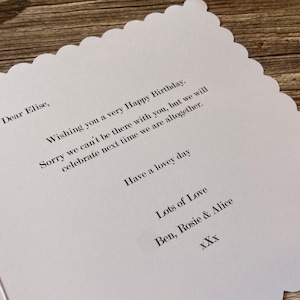 Dear Elise,
Wishing you a very Happy Birthday.
Sorry we can't be there with you, but we will
celebrate next time we are altogether.
Have a lovey day
Lots of Love
Ben, Rosie & Alice
xXx